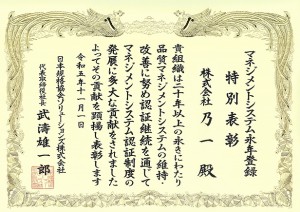 マネジメントシステム永年登録
特別表彰
株式会社 乃一 殿
貴組織は二十年以上の永きにわたり
品質マネジメントシステムの維持・
改善に努め認証継続を通じて
マネジメントシステム認証制度の
発展に多大な貢献をされました
よってその貢献を顕揚し表彰します
令和五年十一月一日
日本規格協会ソリューションズ株式会社
代表取締役社長 武濤雄一郎